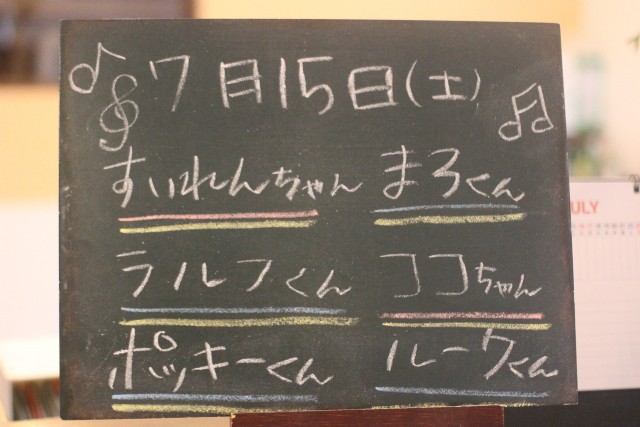 7月15日(土)
すいれんちゃん まろくん
ラルフくん ココちゃん
ポッキーくん ルークくん
JULY